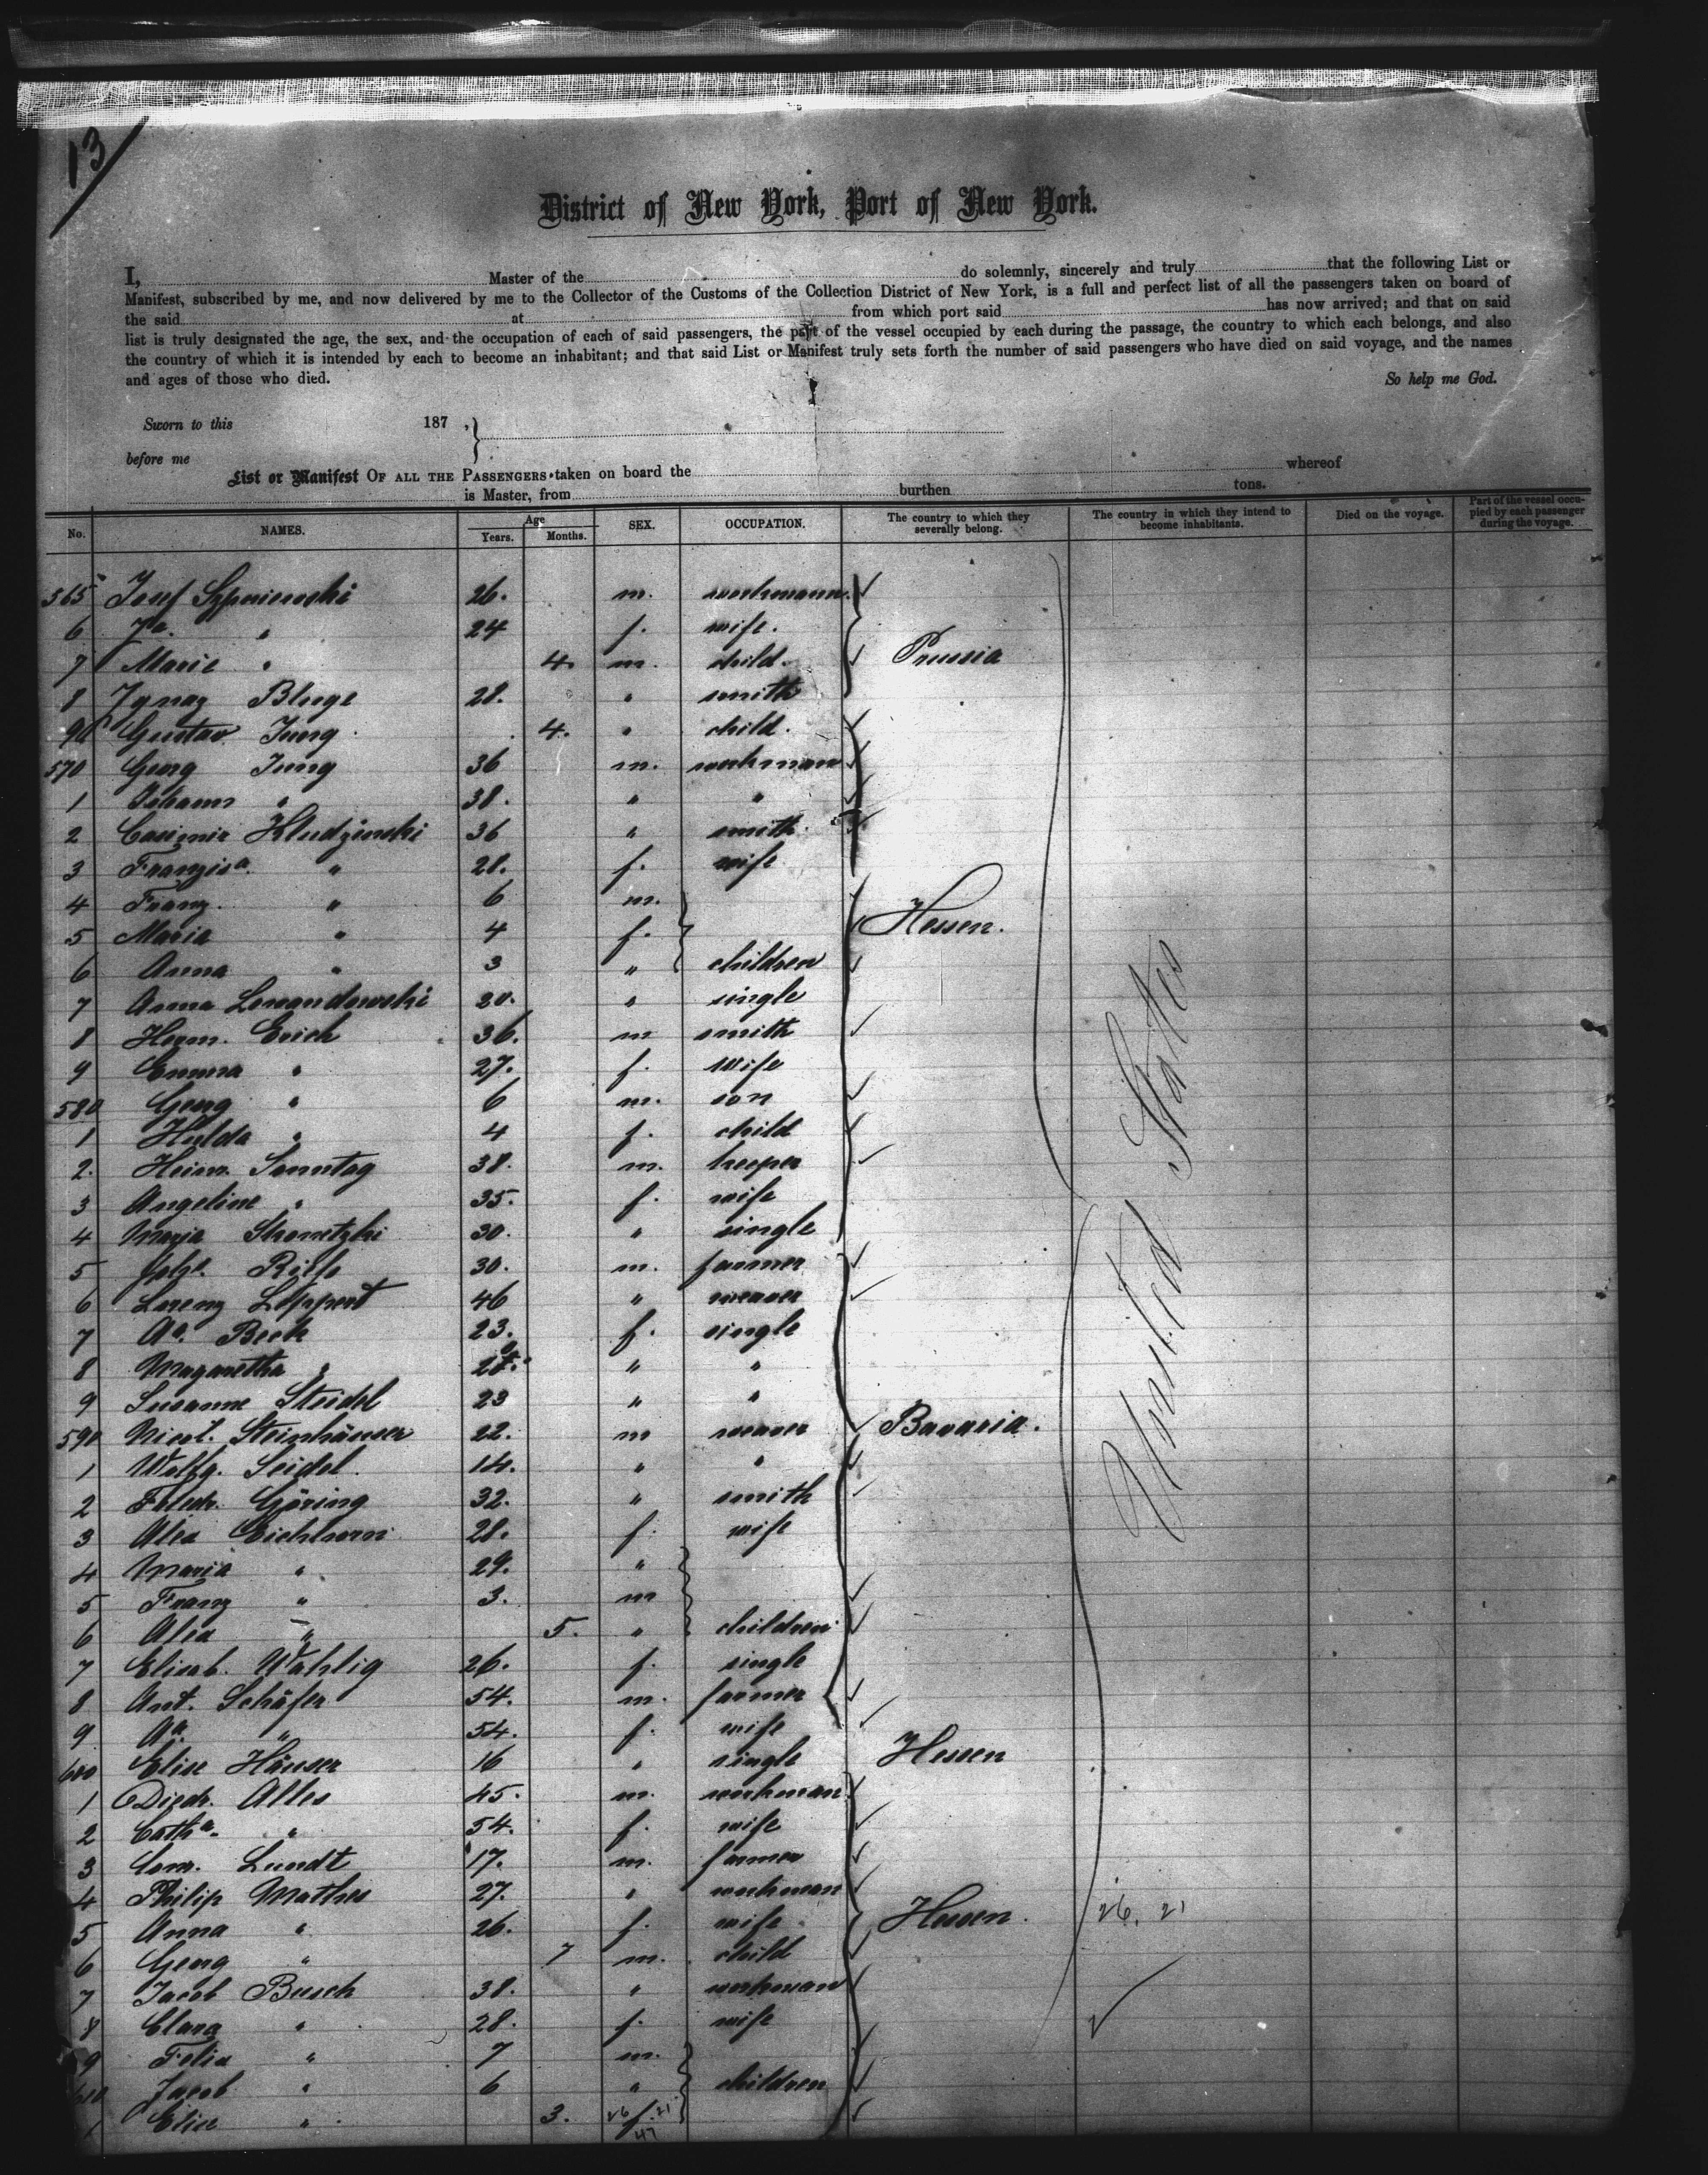 13
District of New York, Port of New York.
I, Master of the do solemnly, sincerely and truly that the following List or
Manifest, subscribed by me, and now delivered by me to the Collector of the Customs of the Collection District of New York, is a full and perfect list of all the passengers taken on board of
the said at from which port said has now arrived; and that on said
list is truly designated the age, the sex, and the occupation of each of said passengers, the part of the vessel occupied by each during the passage, the country to which each belongs, and also
the country of which it is intended by each to become an inhabitant; and that said List or Manifest truly sets forth the number of said passengers who have died on said voyage, and the names
and ages of those who died. So help me God.
Sworn to this 187 ,
before me
List or Manifest OF ALL THE PASSENGERS taken on board the whereof
is Master, from burthen tons.
No. NAMES. Age Years. Months. SEX. OCCUPATION. The country to which they severally belong. The country in which they intend to become inhabitants. Died on the voyage. Part of the vessel occupied by each passenger during the voyage.
565 Josef 26. m. workmann.
6 " 24 f. wife.
7 Marie " 4. m. child. Prussia
8 Ignaz Bluge 28. " smith
9 Gustav Jung 4. " child.
570 Georg Jung 36 m. workman
1 Johann " 38. " "
2 Casimir Kludzinski 36 " smith
3 Franzisa. " 28. f. wife
4 Franz. " 6 m.
5 Maria " 4 f. Hessen.
6 Anna " 3 " children
7 Anna Lewandowski 20. " single
8 Herm. Erich 36. m smith
9 Emma " 27. f. wife
580 Georg " 6 m. son
1 Hulda " 4 f. child
2. Heinr. Sonntag 38. m. keeper
3 Angeline " 35. f. wife
4 Maria 30. " single
5 30. m. farmer
6 Lorenz Leppert 46 " weaver
7 Aa. Beck 23. f. single
8 Margaretha " " "
9 Susanne Steidel 23 " "
590 Nicol. Steinhäuser 22. m weaver Bavaria.
1 Wolfg. Seidel. 14. " "
2 Friedr. Göring 32. " smith
3 Eichhorn 28. f. wife
4 Maria " 29. "
5 Franz " 3. m
6 " 5. " children
7 Elisab. Wahlig 26. f. single
8 Ant. Schäfer 54. m. farmer
9 Aa. " 54. f. wife
600 Elise Häuser 16 " single Hessen
1 Diedr. Alles 45. m. workman.
2 Catha. " 54. f. wife
3 Lundt 17. m. farmer
4 Philip Mathes 27. " workman
5 Anna " 26. f. wife Hessen. 26. 21
6 Georg " 7 m. child
7 Jacob Busch 38. " workman
8 Clara " 28. f. wife
9 Felia " 7 m.
610 Jacob " 6 " children
1 Elise " 3. f.
26 21
47
United States